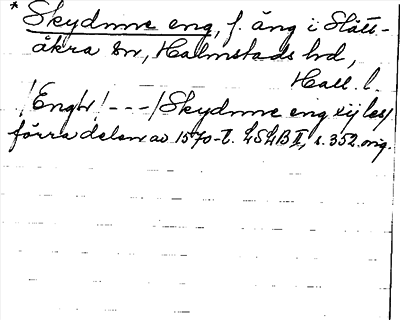 * Skydmne eng, f. äng i Slätt-
åkra sn, Halmstads hd,
Hall. l.
/Engtr/ - - - / Skydmne eng xij les/
förra delen av 1570-t. LSHB II, s. 352. orig.